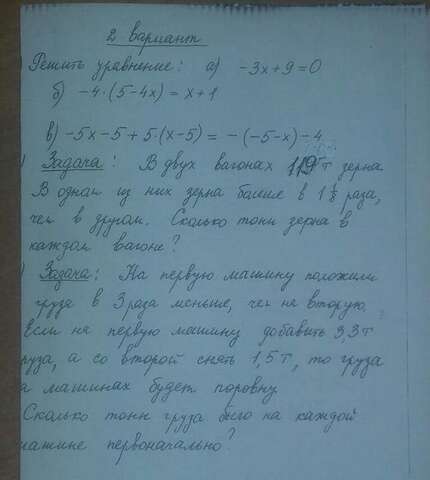 2 вариант
) Решить уравнение: а) -3x+9=0
б) -4·(5-4x) = x+1
в) -5x-5+5·(x-5) = -(-5-x)-4
) Задача: В двух вагонах 119 т зерна.
В одном из них зерна больше в 1 1/8 раза,
чем в другом. Сколько тонн зерна в
каждом вагоне?
) Задача: На первую машину положили
груза в 3 раза меньше, чем на вторую.
Если на первую машину добавить 3,3т
руза, а со второй снять 1,5т, то груза
а машинах будет поровну
Сколько тонн груза было на каждой
машине первоначально?